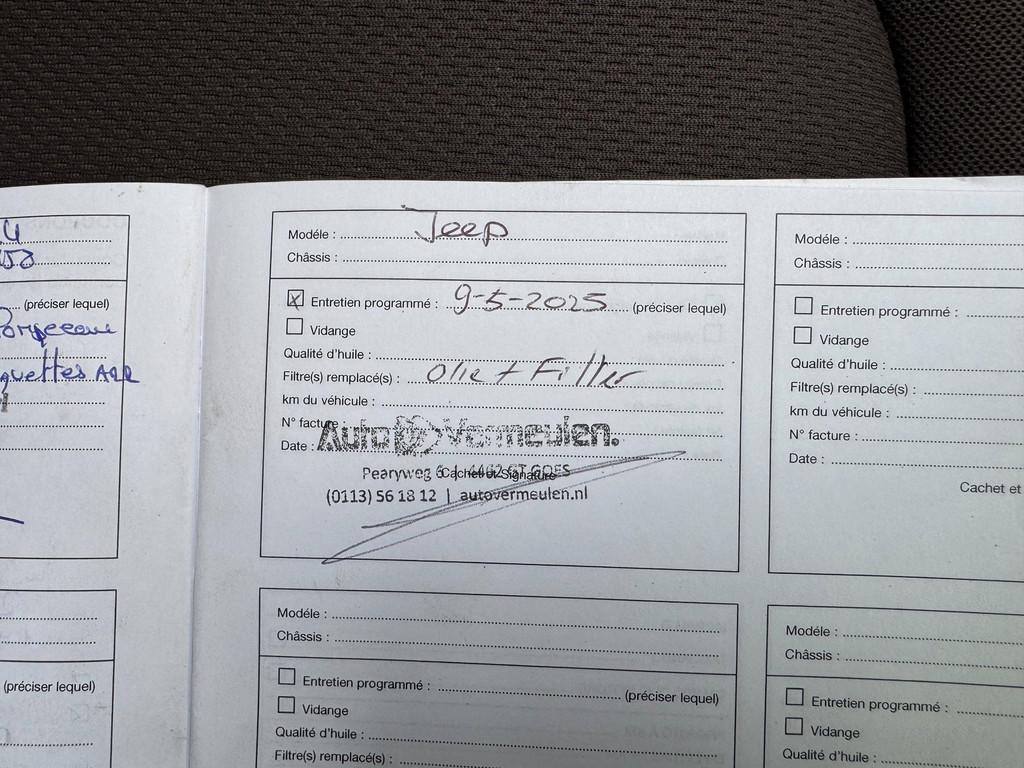 (préciser lequel)
Modéle : Jeep
Châssis :
☒ Entretien programmé : 9-5-2025 (préciser lequel)
☐ Vidange
Qualité d'huile :
Filtre(s) remplacé(s) : Olie + Filter
km du véhicule :
N° facture
Date :
Auto Vermeulen.
Pearyweg 6 | 4462 GT GOES
Cachet et Signature
(0113) 56 18 12 | autovermeulen.nl
Modéle :
Châssis :
☐ Entretien programmé :
☐ Vidange
Qualité d'huile :
Filtre(s) remplacé(s) :
km du véhicule :
N° facture :
Date :
Cachet et
(préciser lequel)
Modéle :
Châssis :
☐ Entretien programmé : (préciser lequel)
☐ Vidange
Qualité d'huile :
Filtre(s) remplacé(s) :
Modéle :
Châssis :
☐ Entretien programmé :
☐ Vidange
Qualité d'huile :